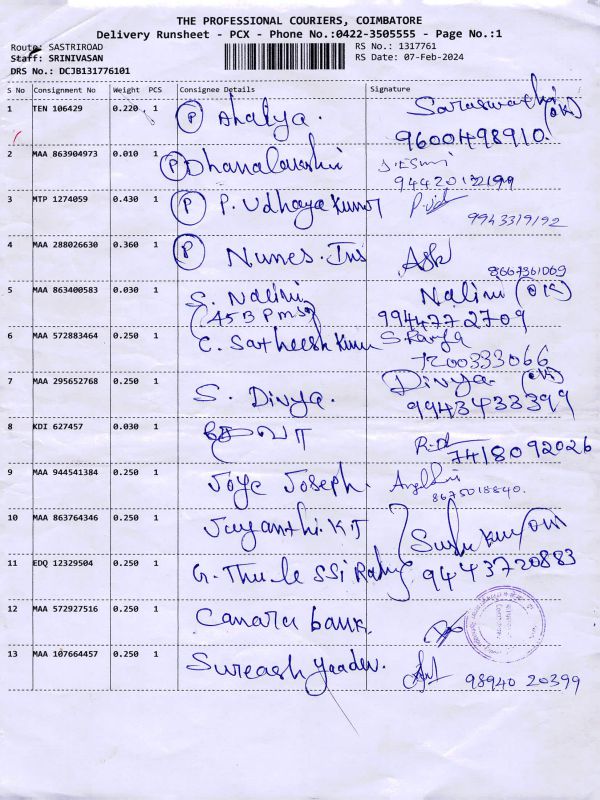 THE PROFESSIONAL COURIERS, COIMBATORE
Delivery Runsheet - PCX - Phone No.:0422-3505555 - Page No.:1
Route: SASTRIROAD
RS No.: 1317761
Staff: SRINIVASAN
RS Date: 07-Feb-2024
DRS No.: DCJB131776101
S No Consignment No Weight PCS Consignee Details Signature
1 TEN 106429 0.220 1 P Ahalya. Saraswathi (OK)
9600498910.
2 MAA 863904973 0.010 1 P Dhanalakshmi
3 MTP 1274059 0.430 1 P P. Udhaya Kumar
9943319192
4 MAA 288026630 0.360 1 P Nunes. Ins Ask
8667361069
5 MAA 863400583 0.030 1 S. Nalini Nalini (OK)
9944772709
6 MAA 572883464 0.250 1 C. Satheesh Kumar S. Ramya
7200333066
7 MAA 295652768 0.250 1 S. Divya. Divya. (OK)
9943433399
8 KDI 627457 0.030 1
7418092026
9 MAA 944541384 0.250 1 Joye Joseph.
8675018840.
10 MAA 863764346 0.250 1 Jayanthi. KJ
11 EDQ 12329504 0.250 1 G. 9443720883
12 MAA 572927516 0.250 1 Canara bank.
13 MAA 107664457 0.250 1 Sureash yaadev.
98940 20399